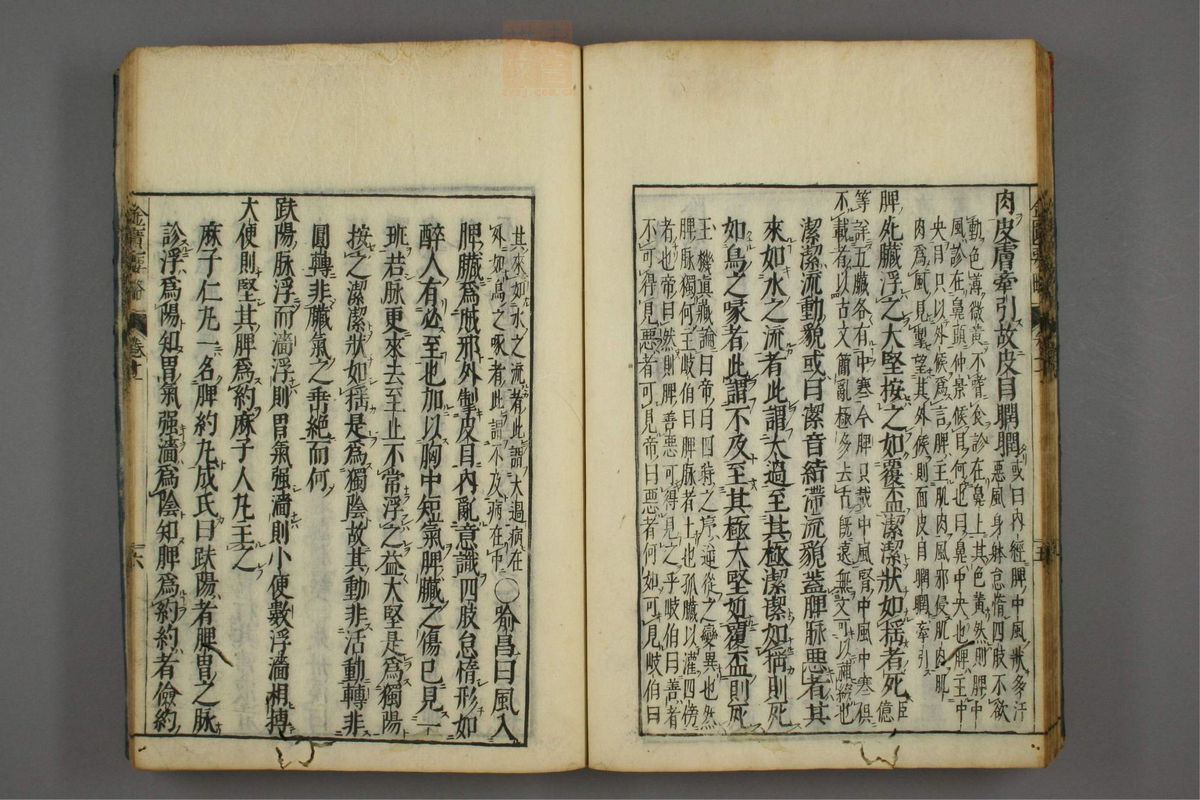 肉皮膚牽引故皮目瞤瞤 或曰內經脾中風狀多汗
惡風身躰怠惰四肢不欲
動色薄微黃不嗜食診在鼻上其色黃然則脾中
風診在鼻頭仲景候目何也曰鼻中央也脾主中
央目只以外候爲言脾主肌肉風邪侵肌肉肌
肉爲風見掣望其外候則面皮目瞤瞤牽引
脾死臟浮之大堅按之如覆盃潔潔狀如搖者死 臣億
等詳五臟各有中寒今脾只載中風腎中風中寒俱
不載者以古文簡亂極多去古旣遠無文可以補綴也
潔潔流動貌或曰潔音結滯流貌蓋脾脉惡者其
來如水之流者此謂太過至其極潔潔如搖則死
如鳥之喙者此謂不及至其極大堅如覆盃則死
玉機眞藏論曰帝曰四時之序逆從之變異也然
脾脉獨何主歧伯曰脾脉者土也孤臟以灌四傍
者也帝曰然則脾善惡可得見之乎歧伯曰善者
不可得見惡者可見帝曰惡者何如可見歧伯曰
其來如水之流者此謂太過病在
外如鳥之喙者此謂不及病在中 〇喻昌曰風入
脾臟爲賊邪外掣皮目內亂意識四肢怠惰形如
醉人有必至也加以胸中短氣脾臟之傷已見一
班若脉更來去至止不常浮之益大堅是爲獨陽
按之潔潔狀如搖是爲獨陰故其動非活動轉非
圓轉非臟氣之垂絕而何
趺陽脉浮而濇浮則胃氣强濇則小便數浮濇相搏
大便則堅其脾爲約麻子人丸主之
麻子仁丸一名脾約丸成氏曰趺陽者脾胃之脉
診浮爲陽知胃氣强濇爲陰知脾爲約約者儉約